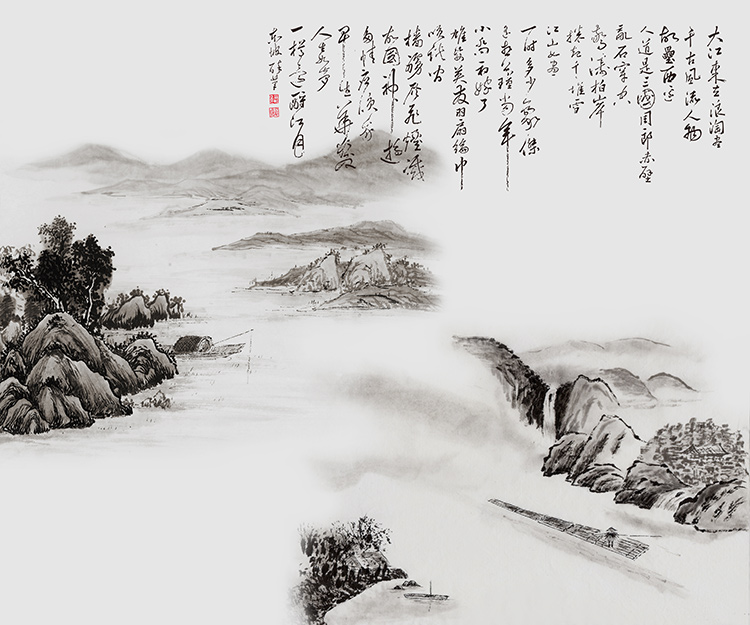 大江東去浪淘尽
千古風流人物
故壘西边
人道是三國周郎赤壁
亂石穿空
驚濤拍岸
捲起千堆雪
江山如畫
一时多少豪傑
遥想公瑾當年
小喬初嫁了
雄姿英发羽扇綸巾
談笑間
檣艣灰飛煙滅
故國神遊
多情應笑我
早生華髮
人生如夢
一樽還酹江月
东坡